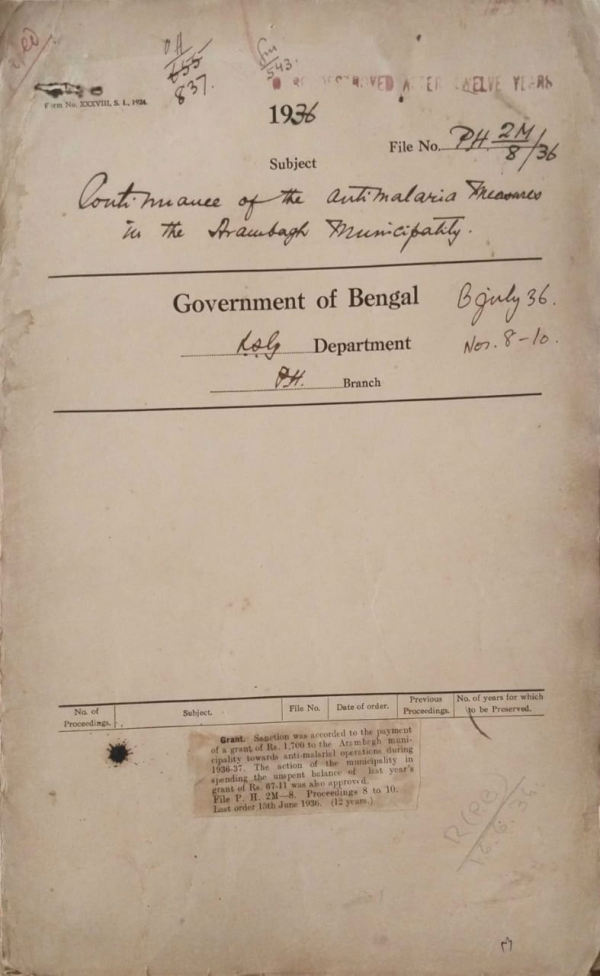 655
837.
543.
TO BE DESTROYED AFTER TWELVE YEARS
Form No. XXXVIII, S. I., 1924.
1936
File No. PH 2M/8/36
Subject
Continuance of the antimalaria Measures
in the Arambagh Municipality.
Government of Bengal
B July 36.
L.S.G Department
Nos. 8-10.
P.H. Branch
No. of Proceedings.
Subject.
File No.
Date of order.
Previous Proceedings.
No. of years for which to be Preserved.
Grant. Sanction was accorded to the payment
of a grant of Rs. 1,700 to the Arambagh muni-
cipality towards anti-malarial operations during
1936-37. The action of the municipality in
spending the unspent balance of last year's
grant of Rs. 67-11 was also approved.
File P. H. 2M—8. Proceedings 8 to 10.
Last order 15th June 1936. (12 years.)